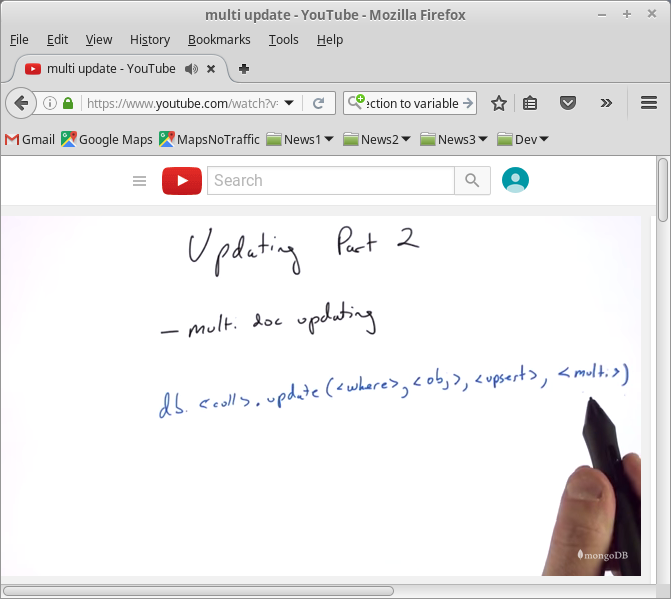 multi update - YouTube - Mozilla Firefox
File Edit View History Bookmarks Tools Help
multi update - YouTube
https://www.youtube.com/watch?v= ection to variable
Gmail Google Maps MapsNoTraffic News1 News2 News3 Dev
Search
Updating Part 2
— multi doc updating
db. <coll>.update(<where>, <obj>, <upsert>, <multi>)
mongoDB